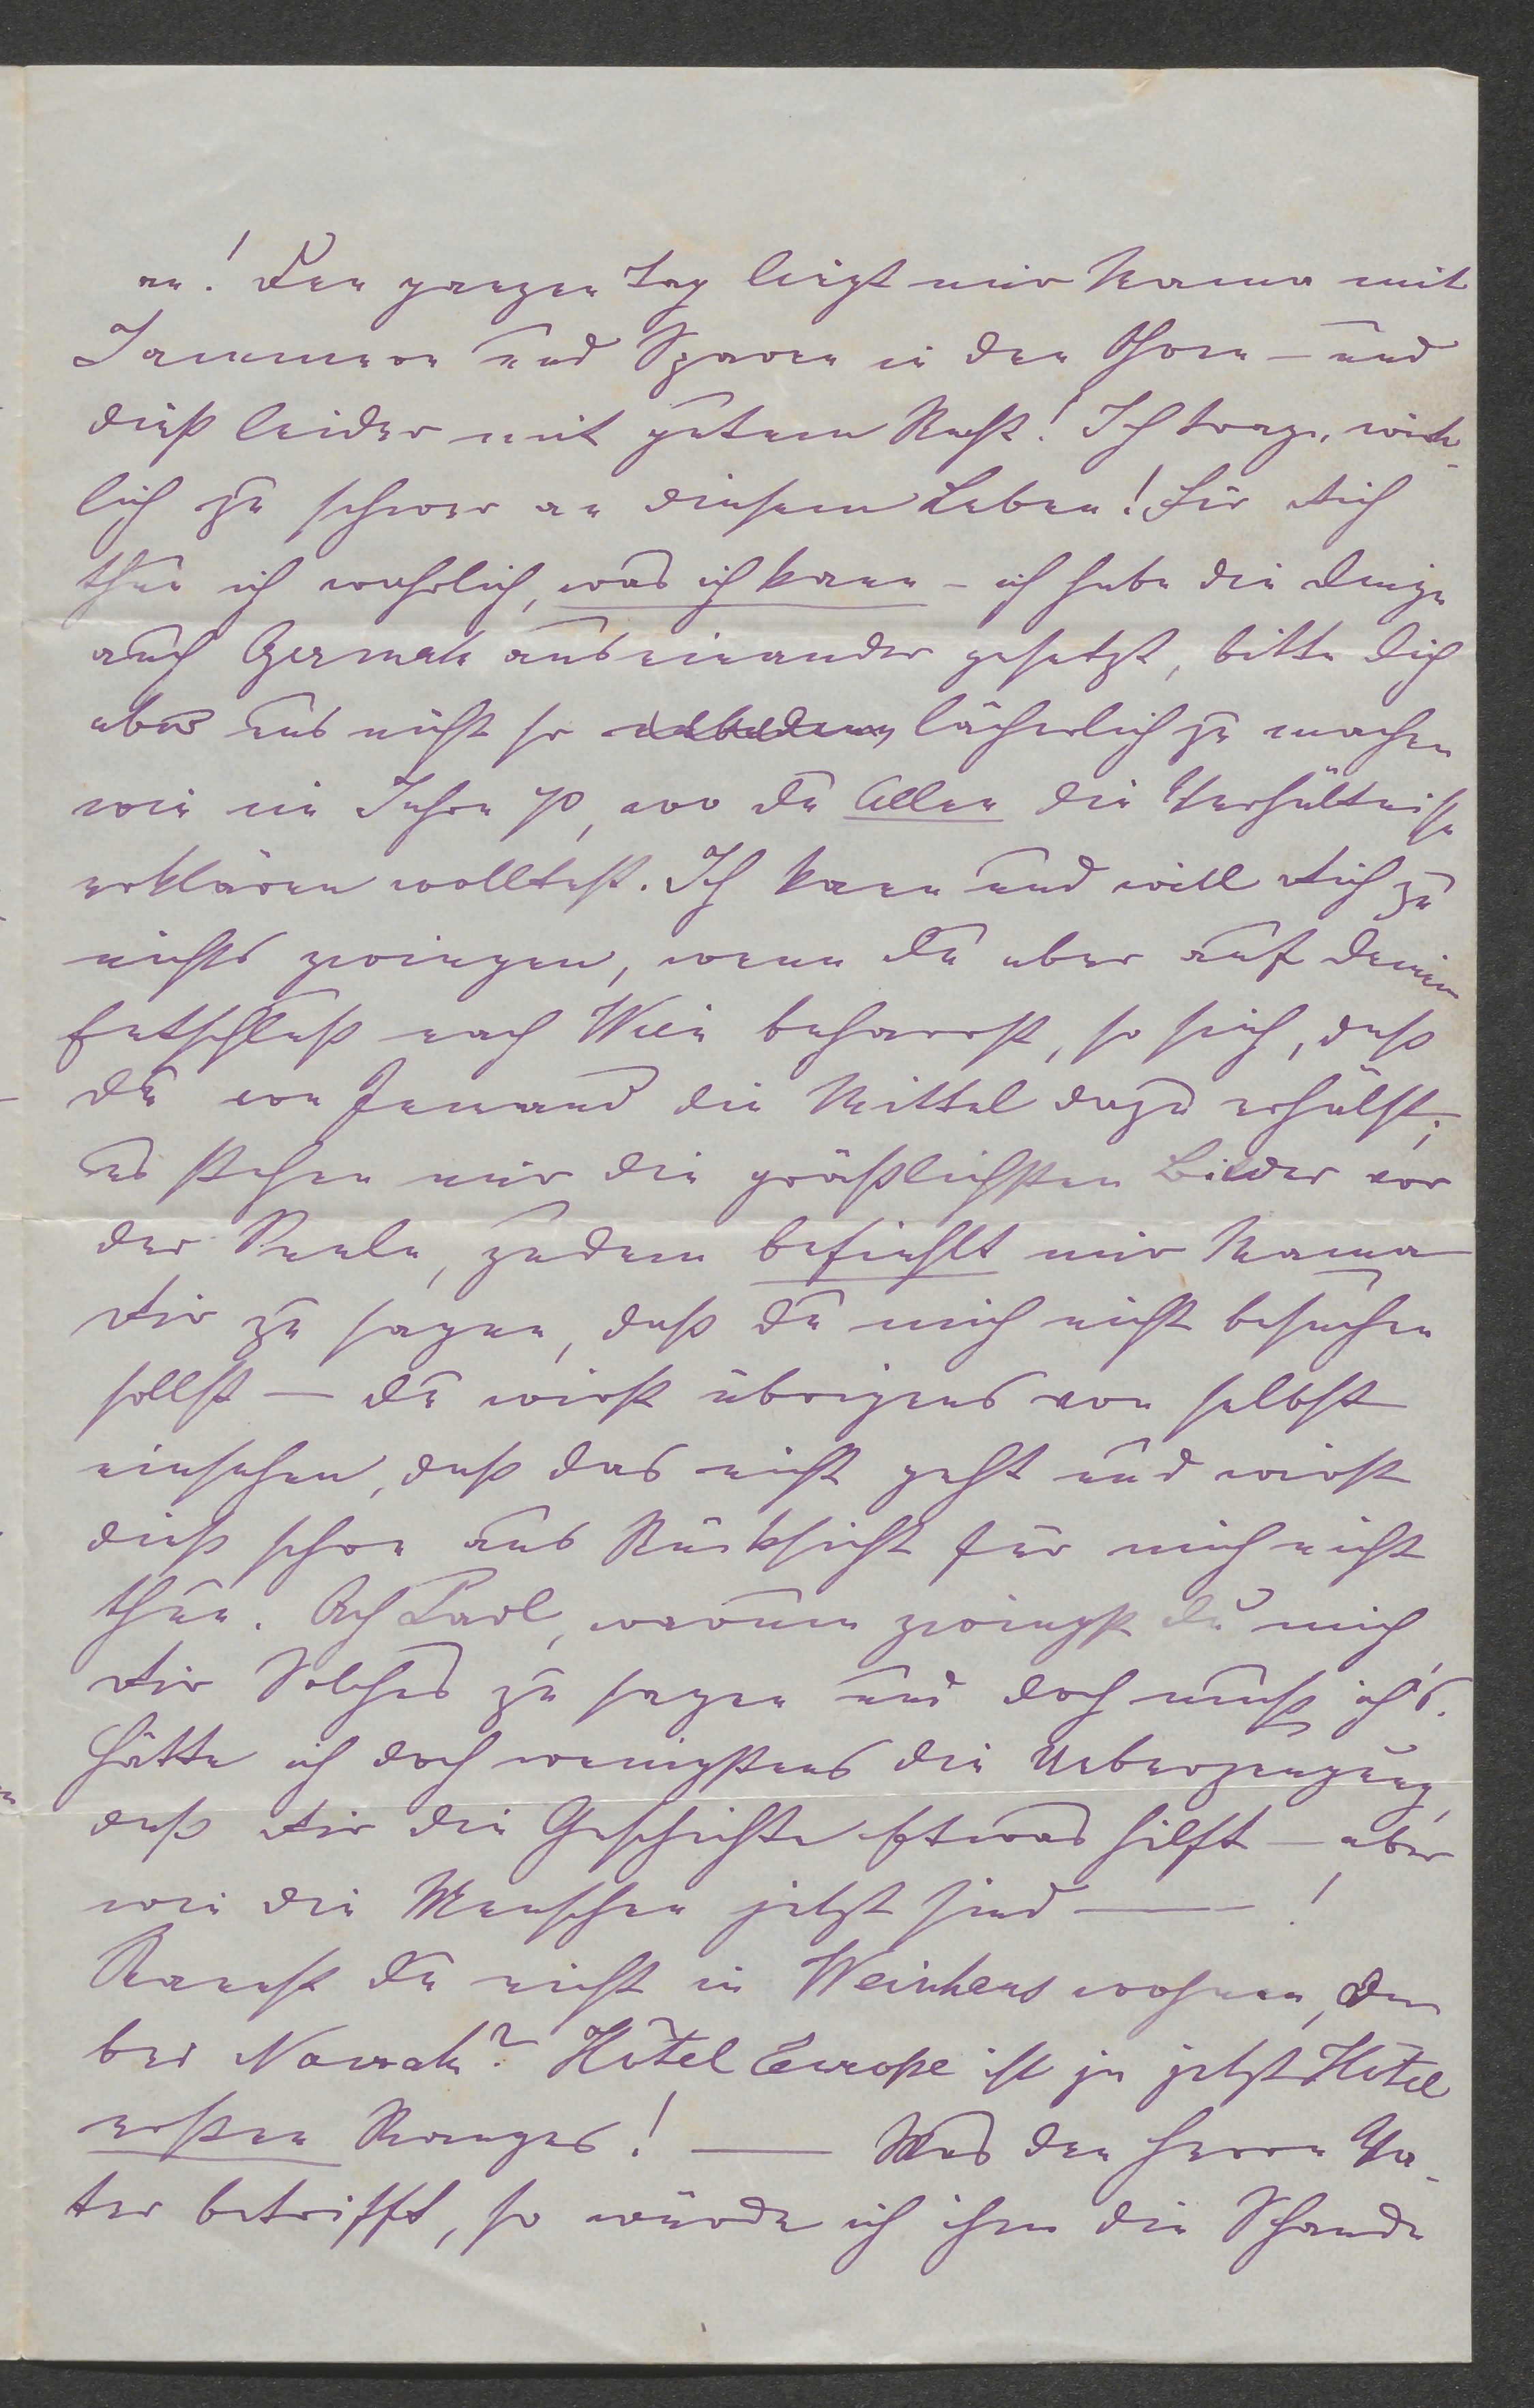 an! Den ganzen Tag liegt mir Mama mit
Jammern und Sparen in den Ohren – und
dieß leider mit gutem Recht! Ich trage wirk-
lich zu schwer an diesem Leben! Für Dich
thue ich wahrlich, was ich kann – ich habe die Dinge
auch Czermak auseinander gesetzt, bitte Dich
aber uns nicht so lächerlich zu machen
wie im Jahre 70, wo Du Allen die Verhältnisse
erklären wolltest. Ich kann und will Dich zu
nichts zwingen, wenn Du aber auf Deinem
Entschluß nach Wien beharrst, so sieh, daß
Du von Jemand die Mittel dazu erhälst;
es stehen mir die gräßlichsten Bilder vor
der Seele, zudem befiehlt mir Mama
Dir zu sagen, daß Du mich nicht besuchen
sollst – Du wirst übrigens von selbst
einsehen, daß das nicht geht und wirst
dieß schon aus Rücksicht für mich nicht
thun. Ach Carl, warum zwingst Du mich,
Dir Solches zu sagen und doch muß ich's.
Hätte ich doch wenigstens die Ueberzeugung,
daß Dir die Geschichte Etwas hilft – aber
wie die Menschen jetzt sind –– !
Kannst Du nicht in Weinhaus wohnen,
bei Nowak? Hôtel Europe ist ja jetzt Hôtel
ersten Ranges! –– Was den Herrn Va-
ter betrifft, so würde ich ihm die Schande